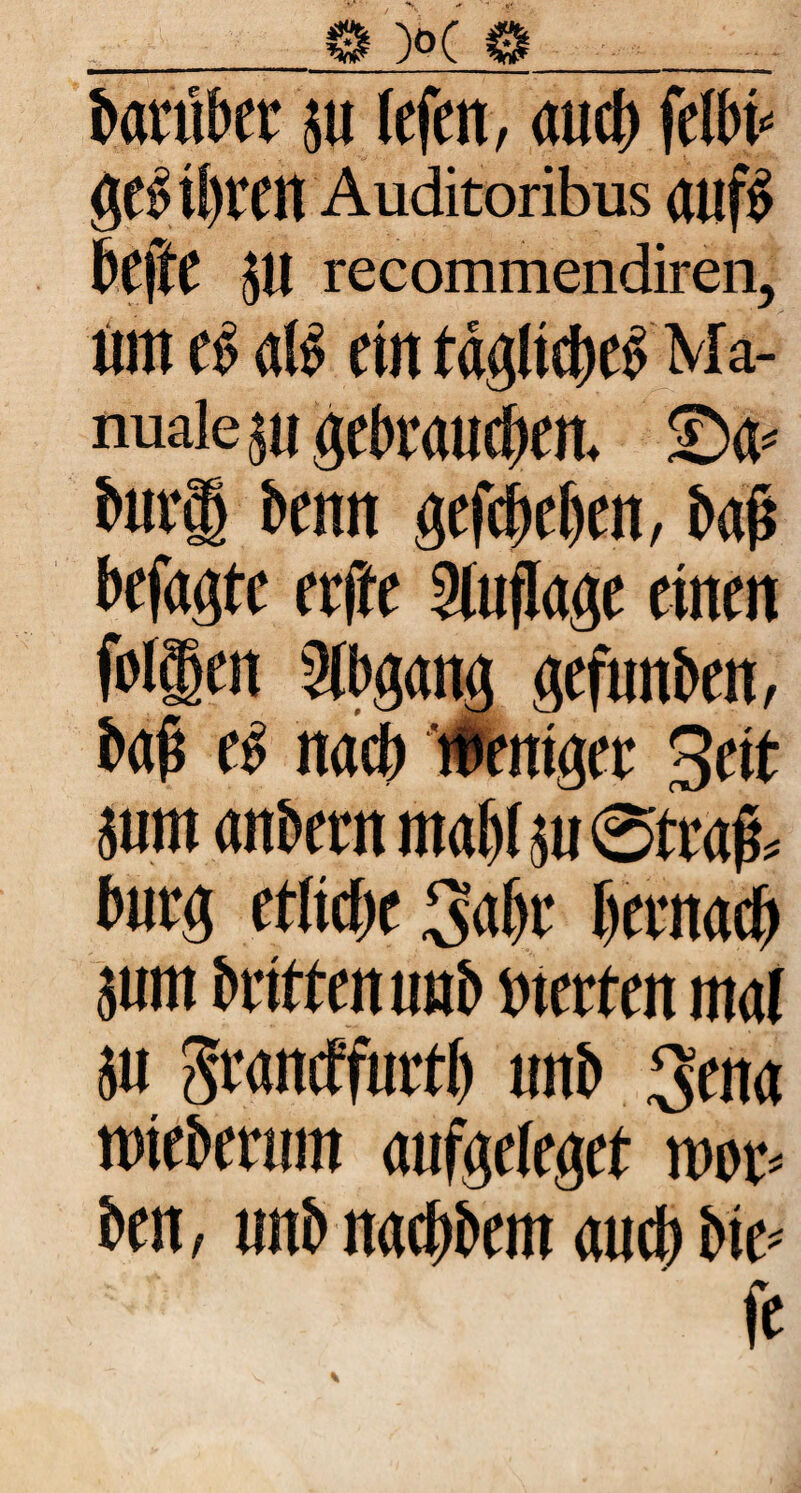 )o(
darüber zu lesen, auch selbi-
ges ihren Auditoribus aufs
beste zu recommendiren,
um es als ein tägliches Ma-
nuale zu gebrauchen. Da-
durch denn geschehen, daß
besagte erste Auflage einen
solchen Abgang gefunden,
daß es nach weniger Zeit
zum andern mahl zu Straß-
burg etliche Jahr hernach
zum dritten und vierten mal
zu Franckfurth und Jena
wiederum aufgeleget wor-
den, und nachdem auch die-
se